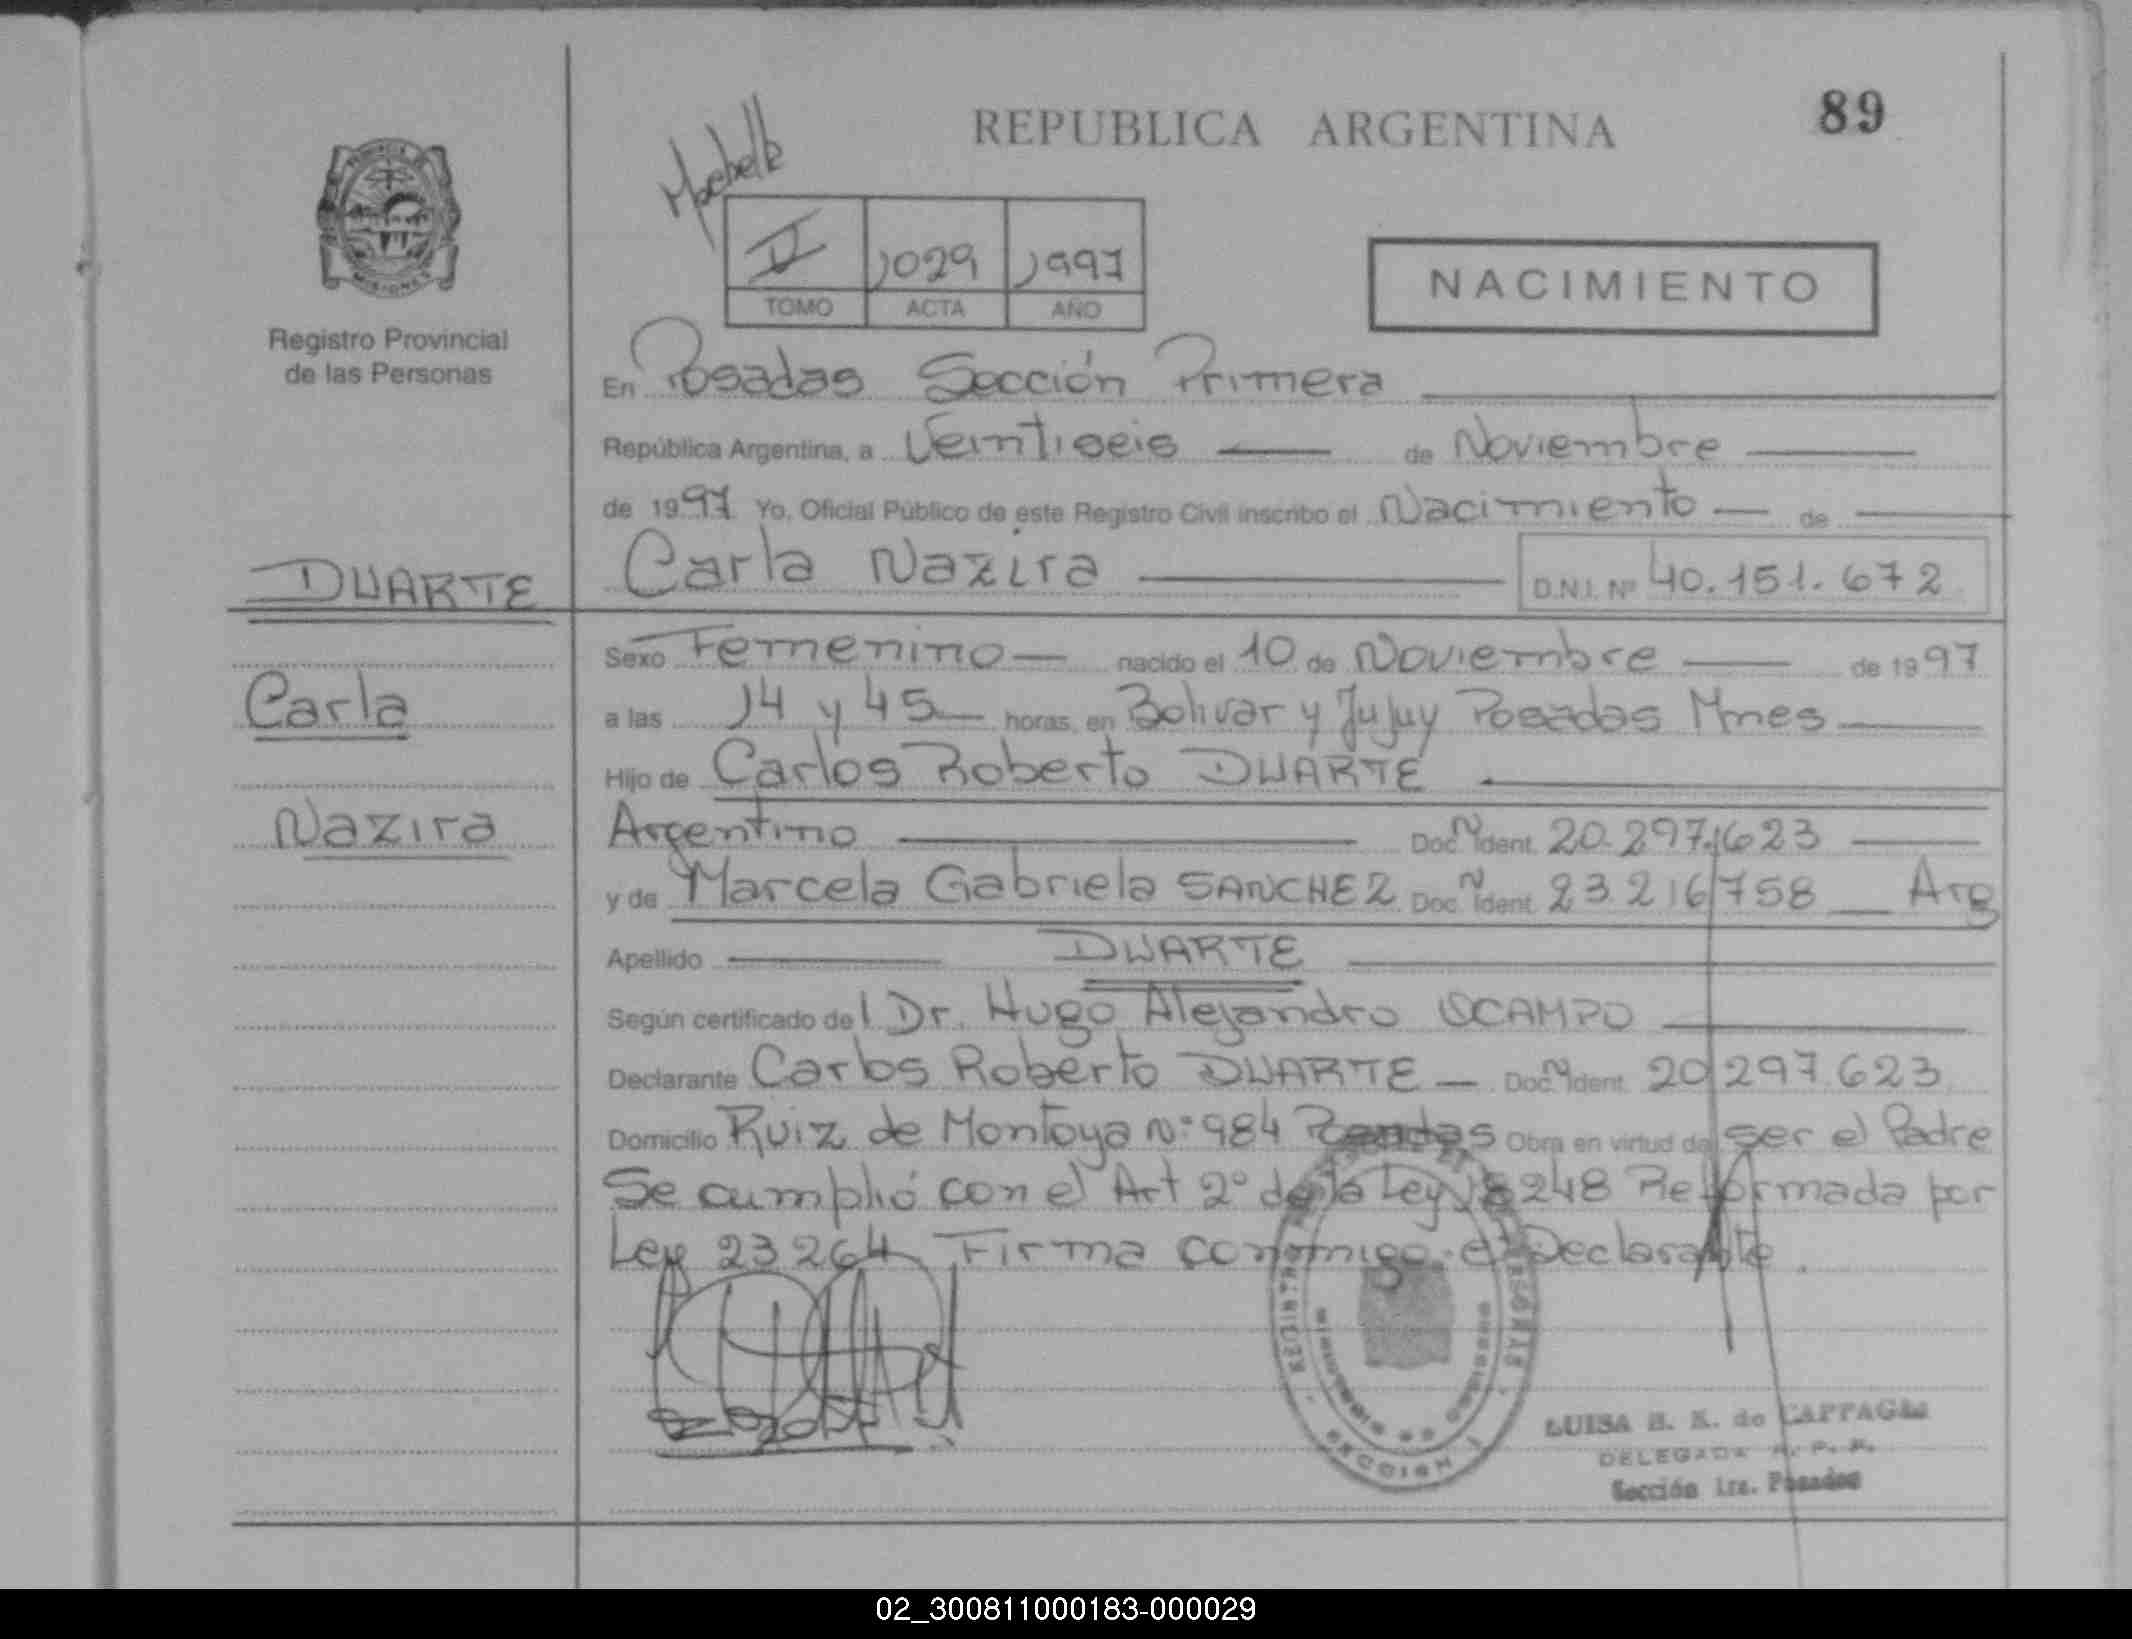 REPUBLICA ARGENTINA
89
II 1029 1997
TOMO ACTA AÑO
NACIMIENTO
Registro Provincial
de las Personas
En Posadas Sección Primera
República Argentina, a Veintiseis de Noviembre
de 1997 Yo, Oficial Público de este Registro Civil inscribo el Nacimiento de
DUARTE
Carla Nazira D.N.I. Nº 40.151.672
Sexo Femenino nacido el 10 de Noviembre de 1997
Carla
a las 14 y 45 horas, en Bolivar y Jujuy Posadas Mnes
Hijo de Carlos Roberto DUARTE
Nazira
Argentino Doc. N Ident. 20.297.623
y de Marcela Gabriela SANCHEZ Doc. N Ident. 23.216.758 Arg
Apellido DUARTE
Según certificado del Dr. Hugo Alejandro OCAMPO
Declarante Carlos Roberto DUARTE Doc. N Ident. 20 297.623
Domicilio Ruiz de Montoya Nº 984 Posadas Obra en virtud de ser el Padre
Se cumplió con el Art 2º de la Ley 18248 Reformada por
Ley 23264 Firma conmigo el Declarante.
SECCION 1
LUISA H. K. de
DELEGADA R. P. P.
Sección 1ra. Posadas
02_300811000183-000029